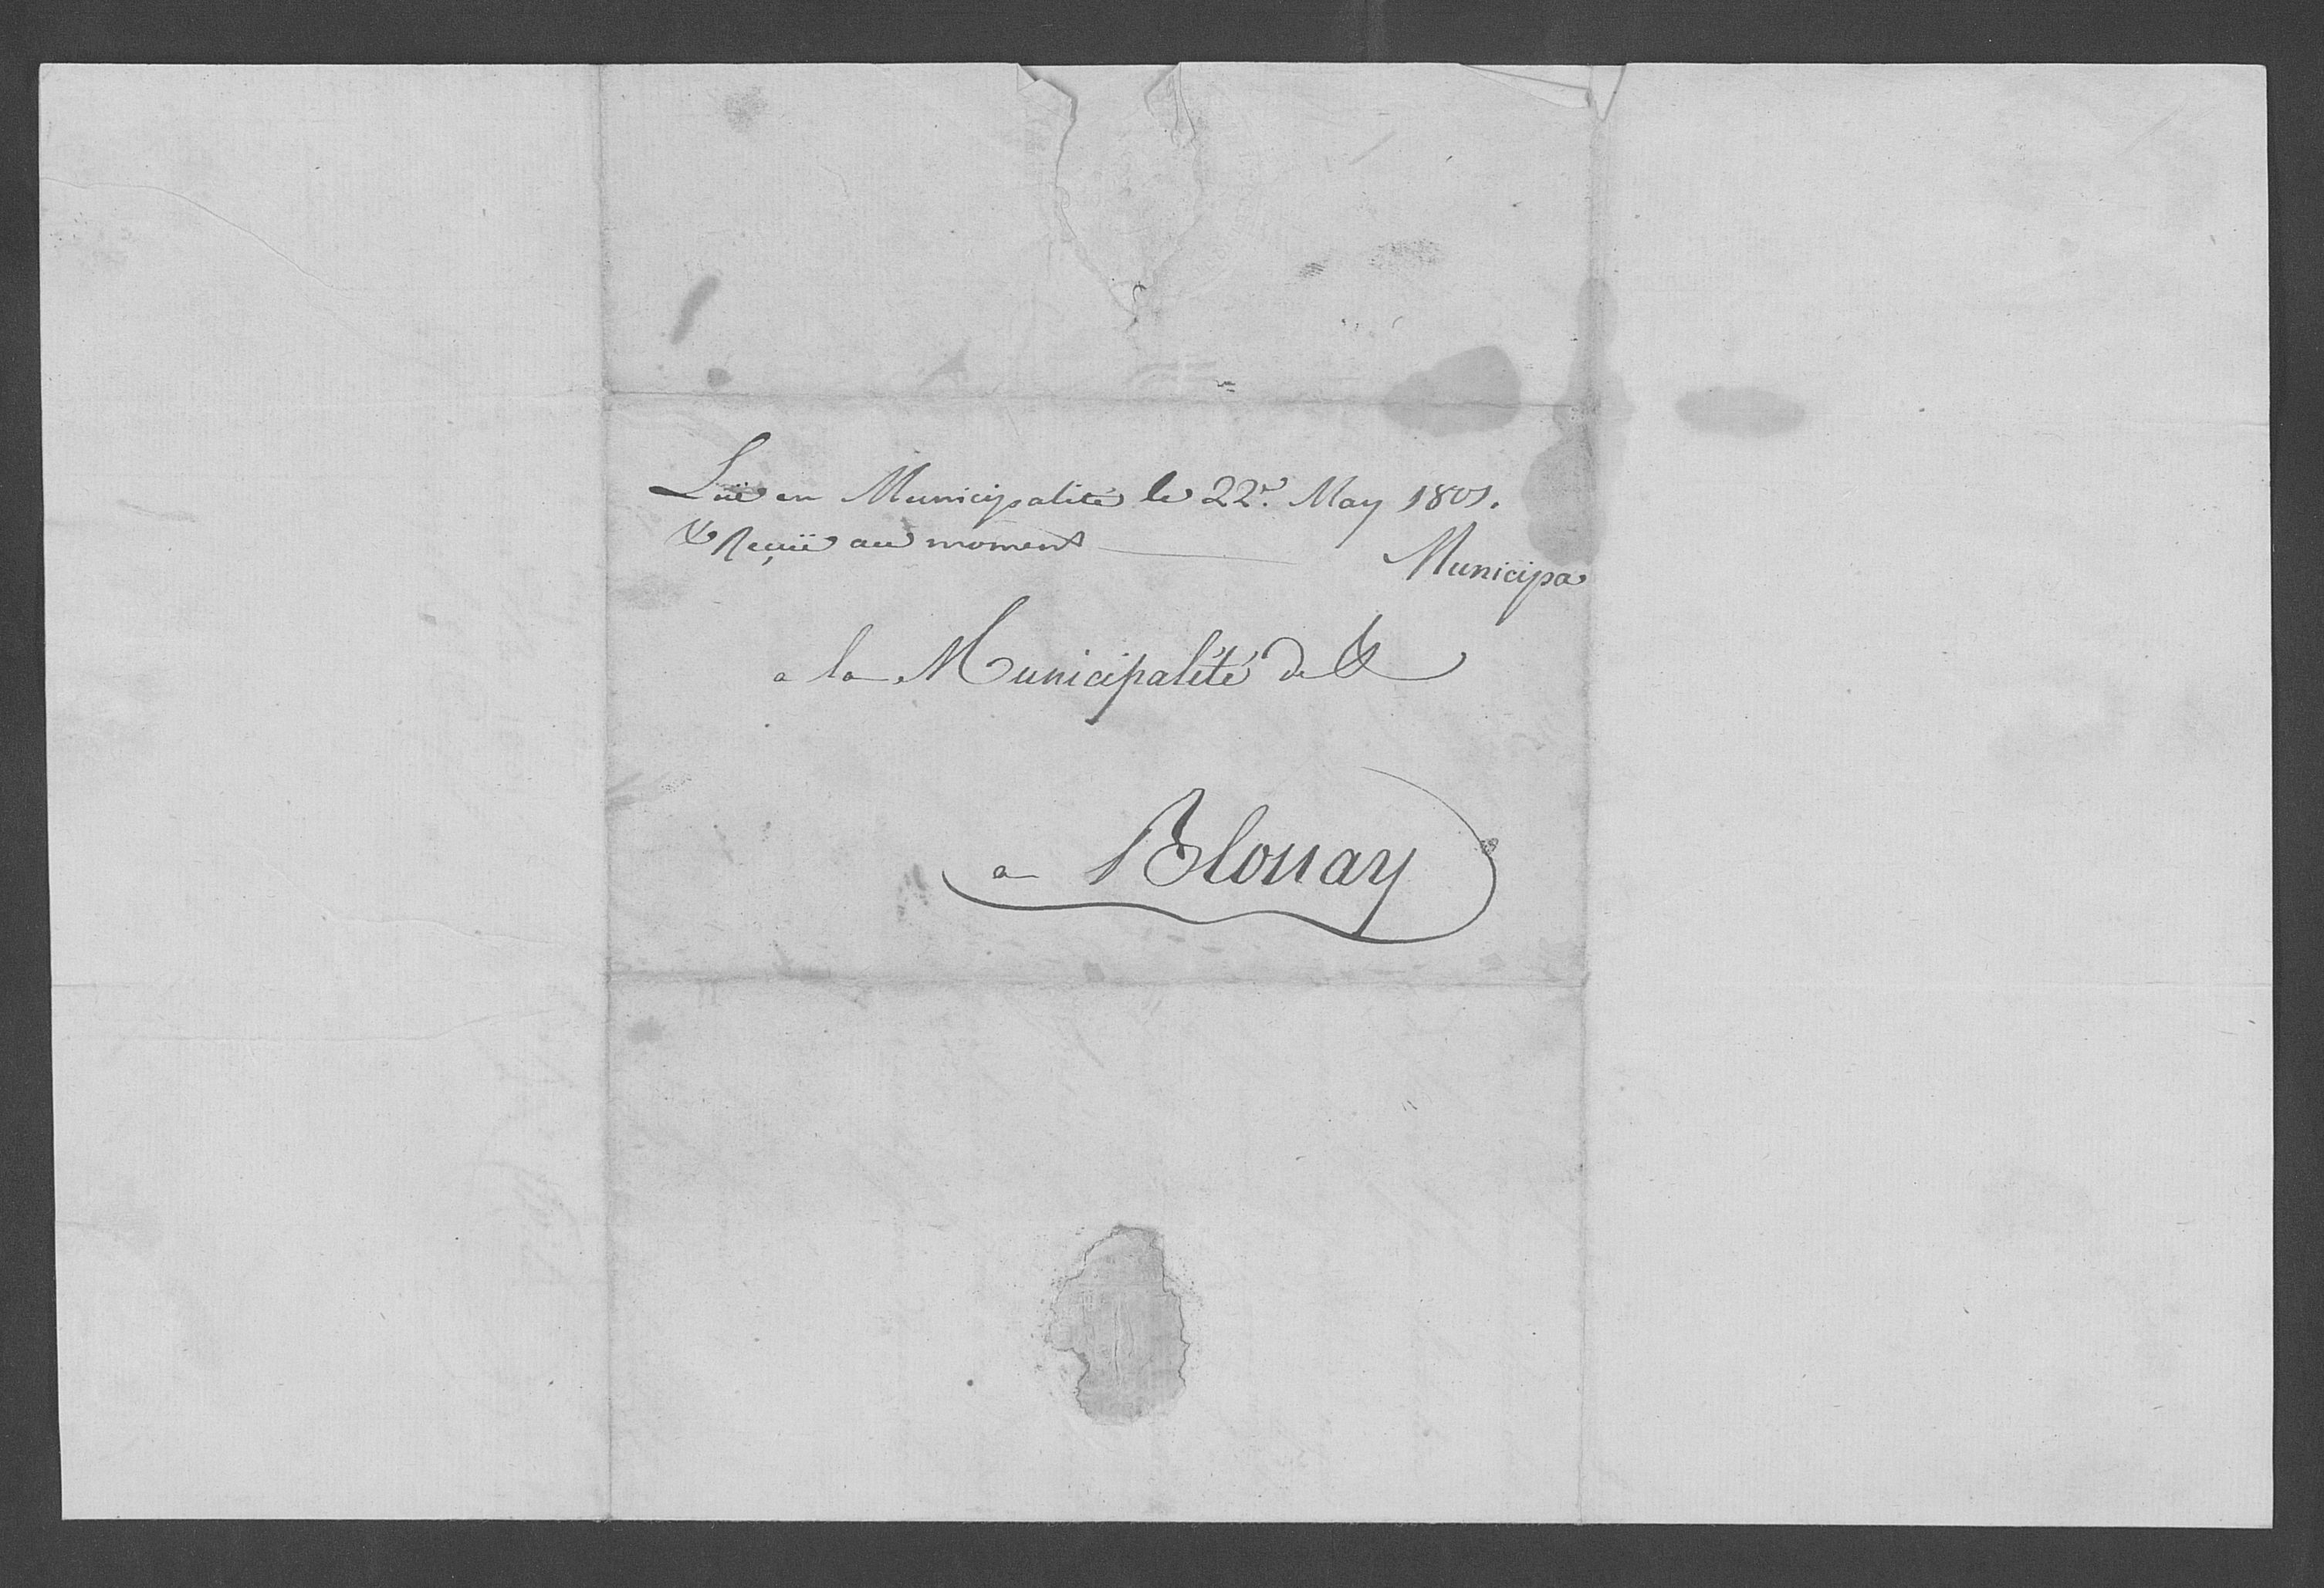 Luë en Municipalité le 22e. May 1801.
& Reçuë au moment
Municipa
a la Municipalité de &
a Blonay